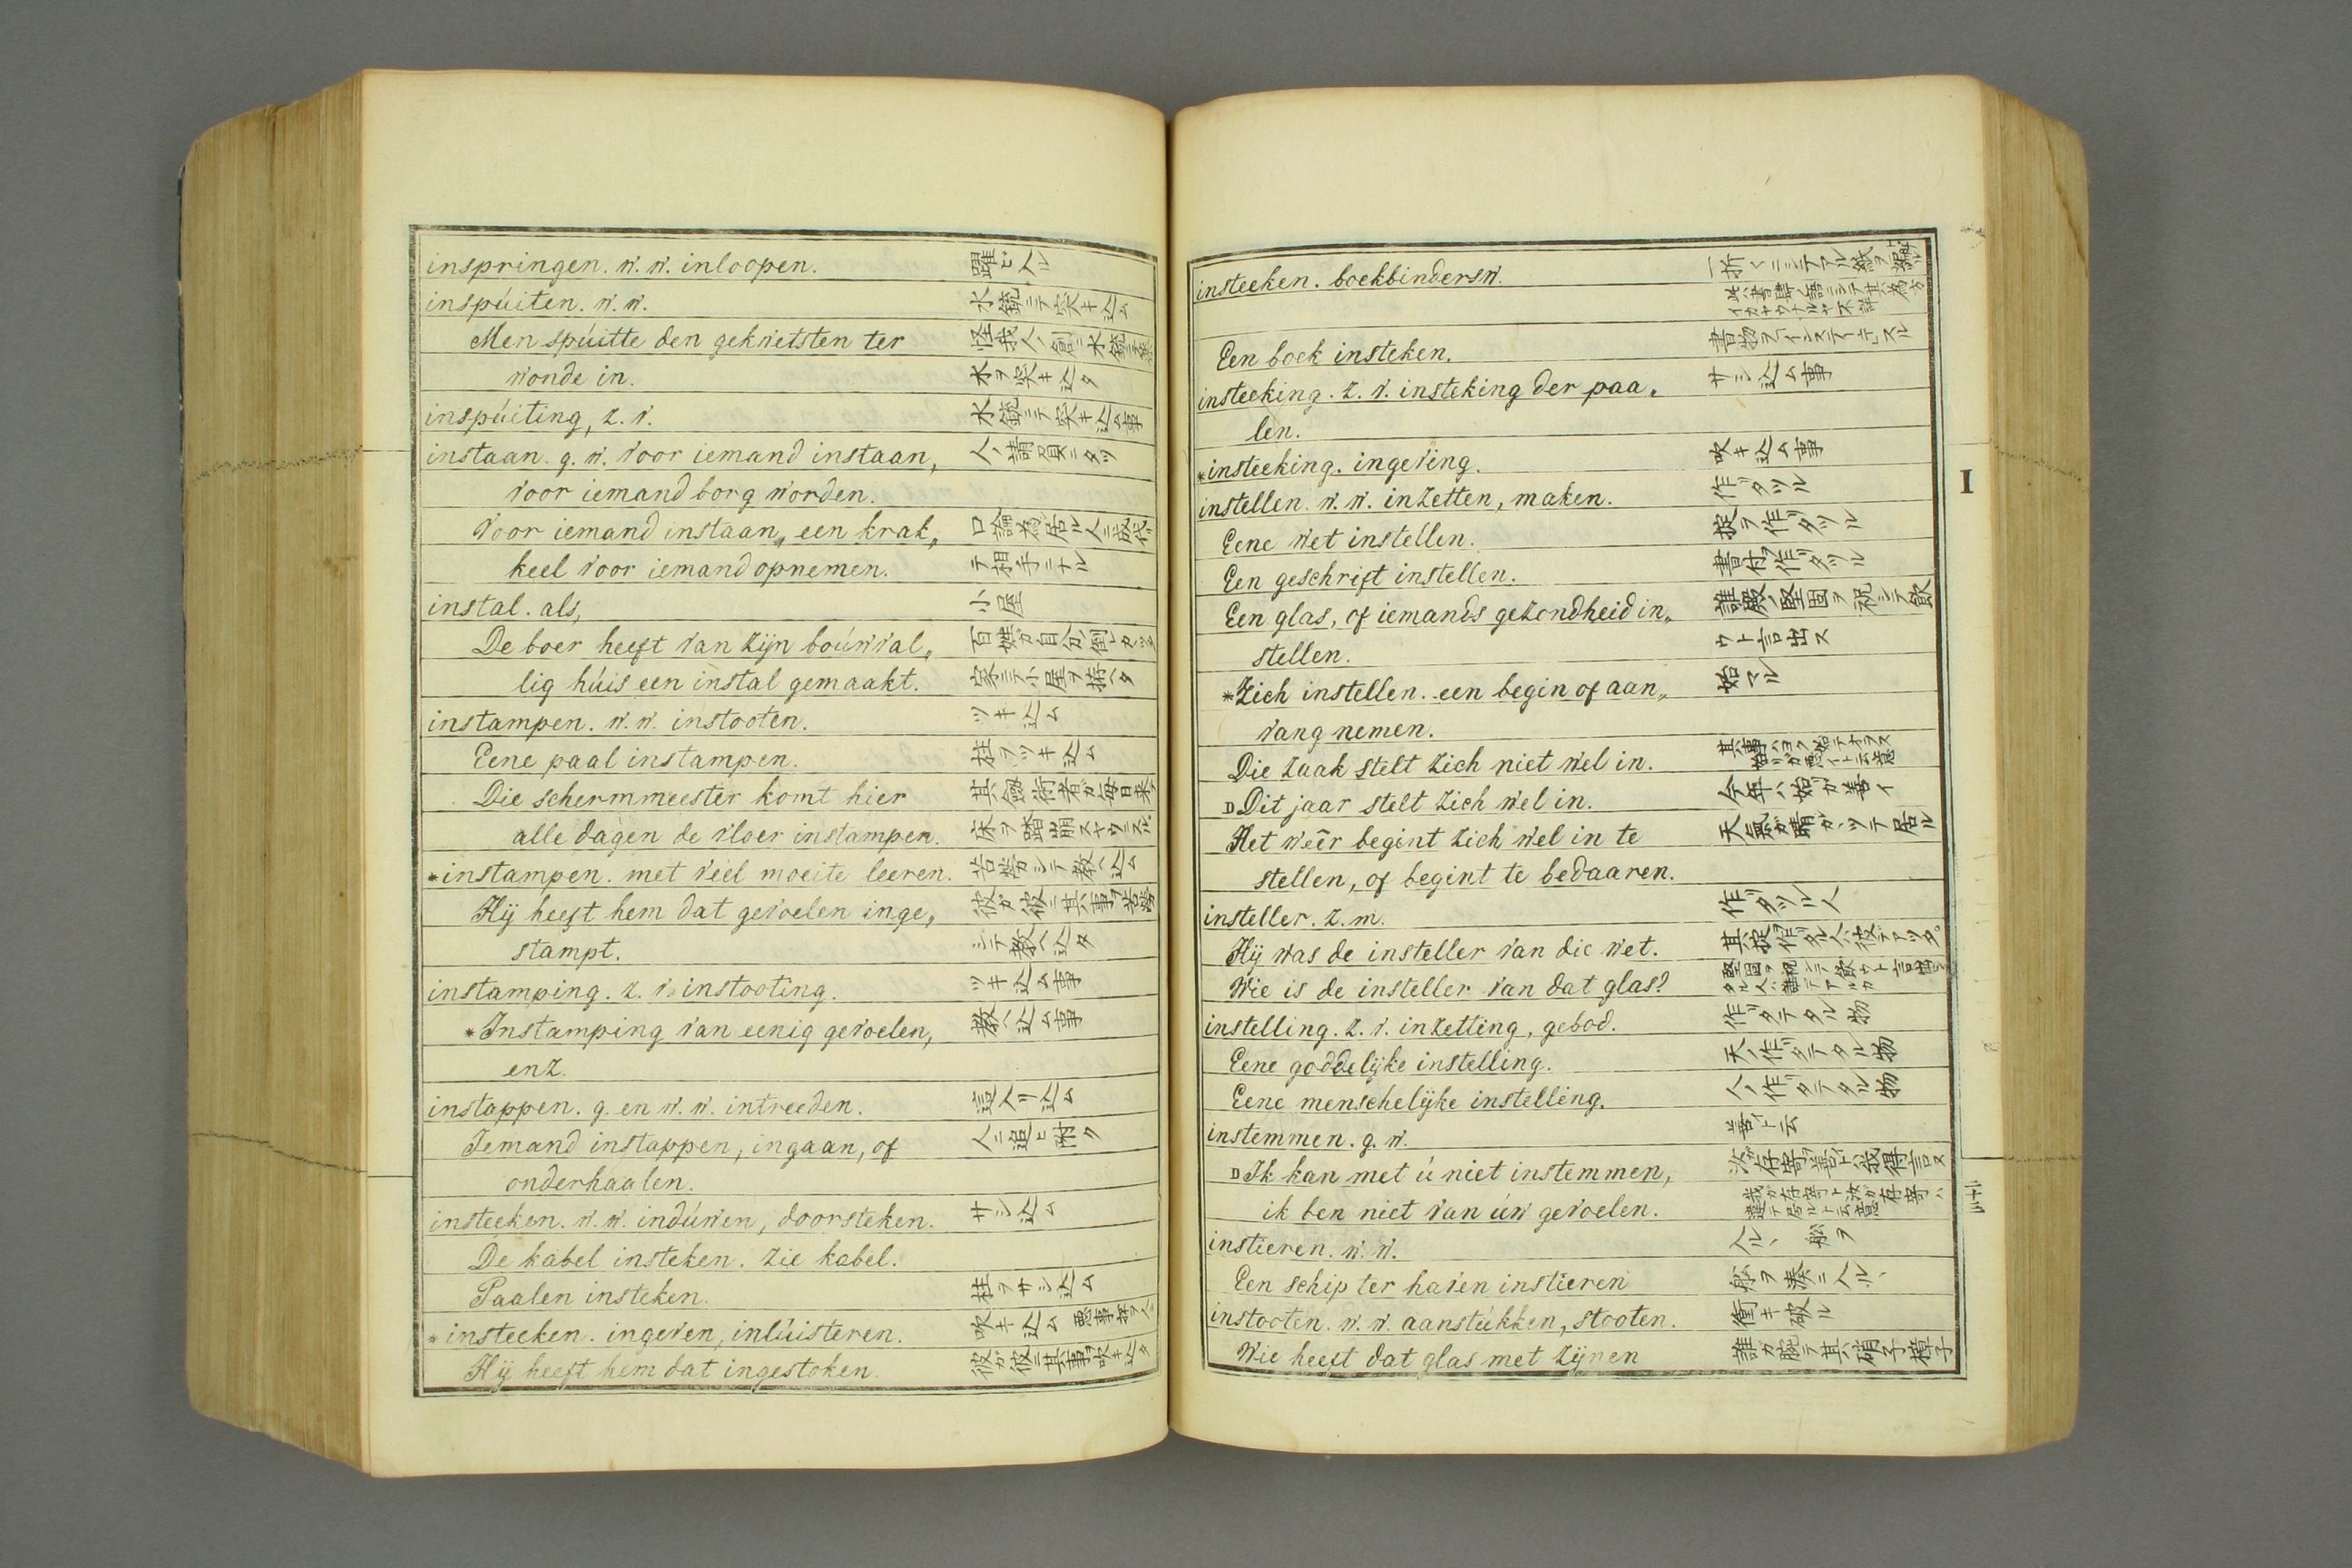 inspringen. w. w. inloopen. 躍ビ入ル
inspúiten. w. w. 水銃ニテ突キ込ム
Men spúitte den gekwetsten ter 怪我人ノ創ニ水銃ニテ
wonde in. 水ヲ突キ込タ
inspúiting, z. v. 水銃ニテ突キ込ム事
instaan. g. w. voor iemand instaan, 人ノ請負ニタツ
voor iemand borg worden.
Voor iemand instaan, een krak„ 口論為居ル人ニ成代
keel voor iemand opnemen. テ相手ニナル
instal. als, 小屋
De boer heeft van zijn boúwval„ 百姓ガ自分ノ倒レカヽツタ
lig húis een instal gemaakt. 家ニテ小屋ヲ拵ヘタ
instampen. w. w. instooten. ツキ込ム
Eene paal instampen. 柱ヲツキ込ム
Die schermmeester komt hier 其劔術者ガ毎日来テ
alle dagen de vloer instampen. 床ヲ踏崩スヤウニスル
*instampen. met veel moeite leeren. 苦勞シテ教ヘ込ム
Hij heeft hem dat gevoelen inge„ 彼ガ彼ニ其事ヲ苦勞
stampt. シテ教ヘ込タ
instamping. z. v. instooting. ツキ込ム事
*Instamping van eenig gevoelen, 教ヘ込ム事
enz.
instappen. g. en w. w. intreeden. 這入リ込ム
Iemand instappen, ingaan, of 人ニ追ヒ附ク
onderhaalen.
insteeken. w. w. indúwen, doorsteken. サシ込ム
De kabel insteken. zie kabel.
Paalen insteken. 柱ヲサシ込ム
*insteeken. ingeven, inlúisteren. 吹キ込ム 悪事抔ヲ人ニ
Hij heeft hem dat ingestoken. 彼ガ彼ニ其事ヲ吹キ込タ
insteeken. boekbindersw. 一折〻ニシテアル紙ヲ
Een boek insteken. 書物ヲインステーキスル
insteeking. z. v. insteking der paa„ サシ込ム事
len.
*insteeking. ingeving. 吹キ込ム事
instellen. w. w. inzetten, maken. 作リタツル
Eene wet instellen. 掟ヲ作リタツル
Een geschrift instellen. 書付ヲ作リタツル
Een glas, of iemands gezondheid in„ 誰殿ノ堅固ヲ祝シテ飲
stellen. ウト言出ス
*Zich instellen. een begin of aan„ 始マル
vang nemen.
Die zaak stelt zich niet wel in. 其事ハヨク始テオラヌ 始リガ悪イト云意
D Dit jaar stelt zich wel in. 今年ハ始ガ善イ
Het weêr begint zich wel in te 天氣ガ晴ガヽツテ居ル
stellen, of begint te bedaaren.
insteller. z. m. 作リタツル人
Hij was de insteller van die wet. 其掟ヲ作リタル人ハ彼デアツタ。
Wie is de insteller van dat glas? 堅固ヲ祝シテ飲ウト言出シタル人ハ誰デアルカ
instelling. z. v. inzetting, gebod. 作リタテタル物
Eene goddelijke instelling. 天ノ作リタテタル物
Eene menschelijke instelling. 人ノ作リタテタル物
instemmen. g. w. 善ト云
D Ik kan met ú niet instemmen, 汝ガ存寄ヲ善トハ我得言ヌ
ik ben niet van úw gevoelen. 我ガ存寄ト汝ガ存寄ハ違テ居ルト云意
instieren. w. w. 入ルヽ 舩ヲ
Een schip ter haven instieren 舩ヲ湊ニ入ルヽ
instooten. w. w. aanstúkken, stooten. 衝キ破ル
Wie heeft dat glas met zijnen 誰ガ腕ニテ其硝子樟子
I
二十三